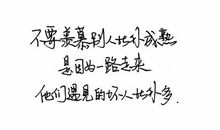 不要羡慕别人比你成熟
是因为一路走来
他们遇见的坏人比你多.